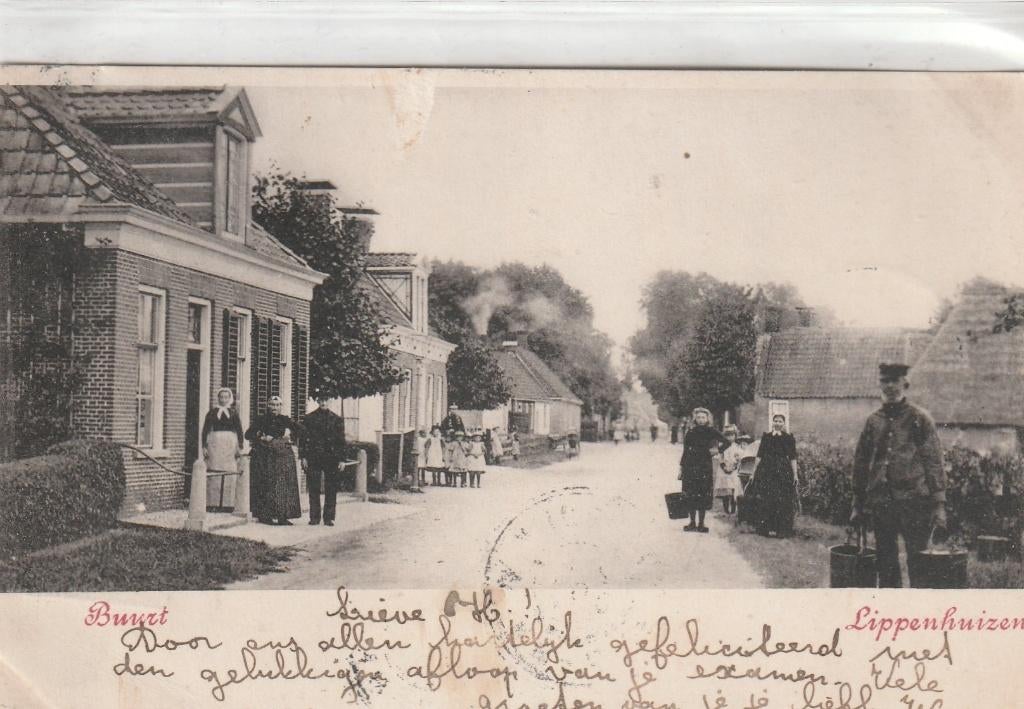 Buurt
Lippenhuizen
Lieve
Door ons allen hartelijk gefeliciteerd met
den gelukkigen afloop van je examen. Vele
groeten van je je liefh.